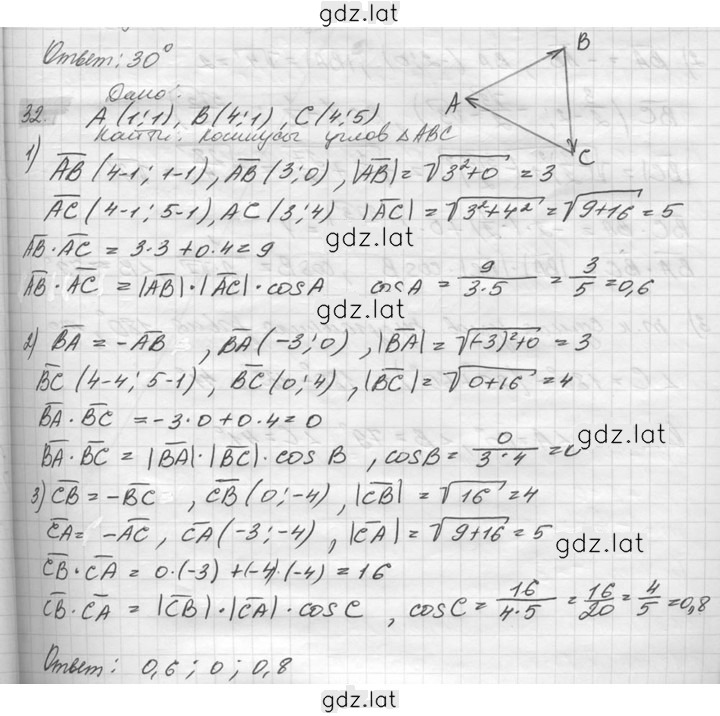 gdz.lat
Ответ: 30°
B
A
C
Дано:
32. A (1;1), B(4;1), C(4;5)
Найти: косинусы углов △ABC
1)
A̅B̅ (4-1; 1-1), A̅B̅ (3;0), |A̅B̅| = √3²+0 = 3
A̅C̅ (4-1; 5-1), AC (3;4) |A̅C̅| = √3²+4² = √9+16 = 5
gdz.lat
A̅B̅ · A̅C̅ = 3·3+0·4=9
A̅B̅ · A̅C̅ = |A̅B̅|·|A̅C̅|·cosA cosA = 9/3·5 = 3/5 = 0,6
gdz.lat
2) B̅A̅ = -A̅B̅ , B̅A̅ (-3;0), |B̅A̅| = √(-3)²+0 = 3
B̅C̅ (4-4; 5-1), B̅C̅ (0;4), |B̅C̅| = √0+16 = 4
B̅A̅ · B̅C̅ = -3·0+0·4=0
gdz.lat
B̅A̅ · B̅C̅ = |B̅A̅|·|B̅C̅|·cos B , cosB = 0/3·4 = 0
3) C̅B̅ = -B̅C̅ , C̅B̅ (0;-4), |C̅B̅| = √16 = 4
C̅A̅ = -A̅C̅ , C̅A̅ (-3;-4), |C̅A̅| = √9+16 = 5
gdz.lat
C̅B̅ · C̅A̅ = 0·(-3) + (-4)·(-4) = 16
C̅B̅ · C̅A̅ = |C̅B̅|·|C̅A̅|·cos C , cosC = 16/4·5 = 16/20 = 4/5 = 0,8
gdz.lat
Ответ: 0,6 ; 0 ; 0,8
gdz.lat